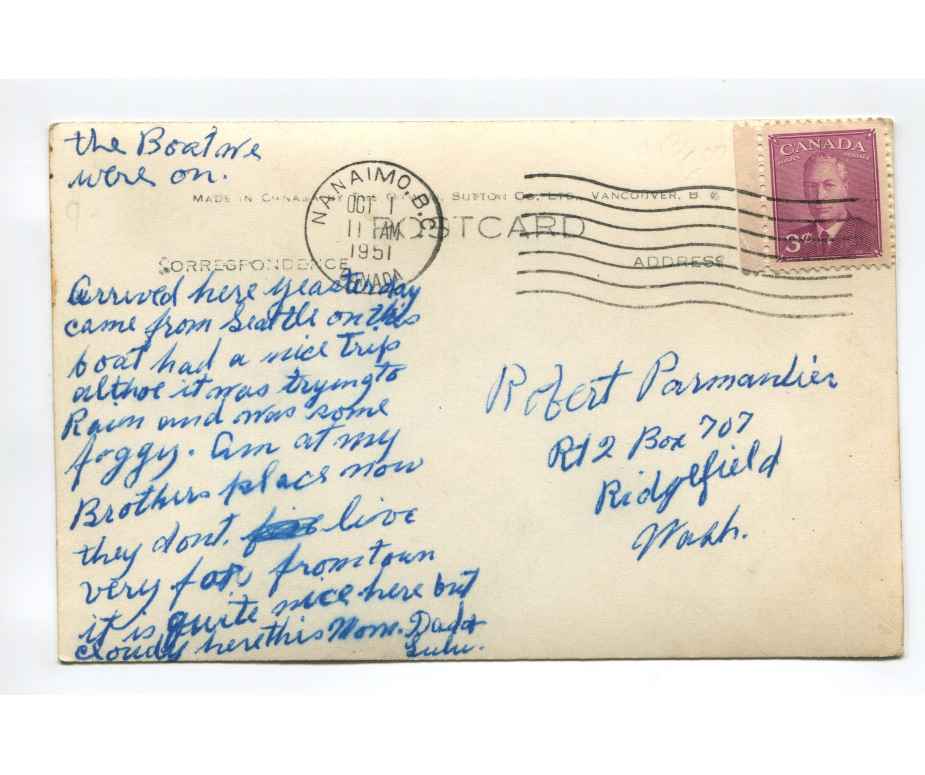 the Boat we
were on.
MADE IN CANADA BY THE SUTTON CO., LTD., VANCOUVER, B
NANAIMO, B.C.
OCT 1
11 AM
1951
CANADA
POSTCARD
CORRESPONDENCE
ADDRESS
CANADA
POSTES POSTAGE
3¢
arrived here yeasterday
came from Seattle on this
boat had a nice trip
althoe it was trying to
Rain and was some
foggy. Am at my
Brothers place now
they dont live
very far from town
it is quite nice here but
cloudy here this Morn. Dad &
Lulu.
Robert Parmantier
Rt 2 Box 707
Ridgefield
Wash.